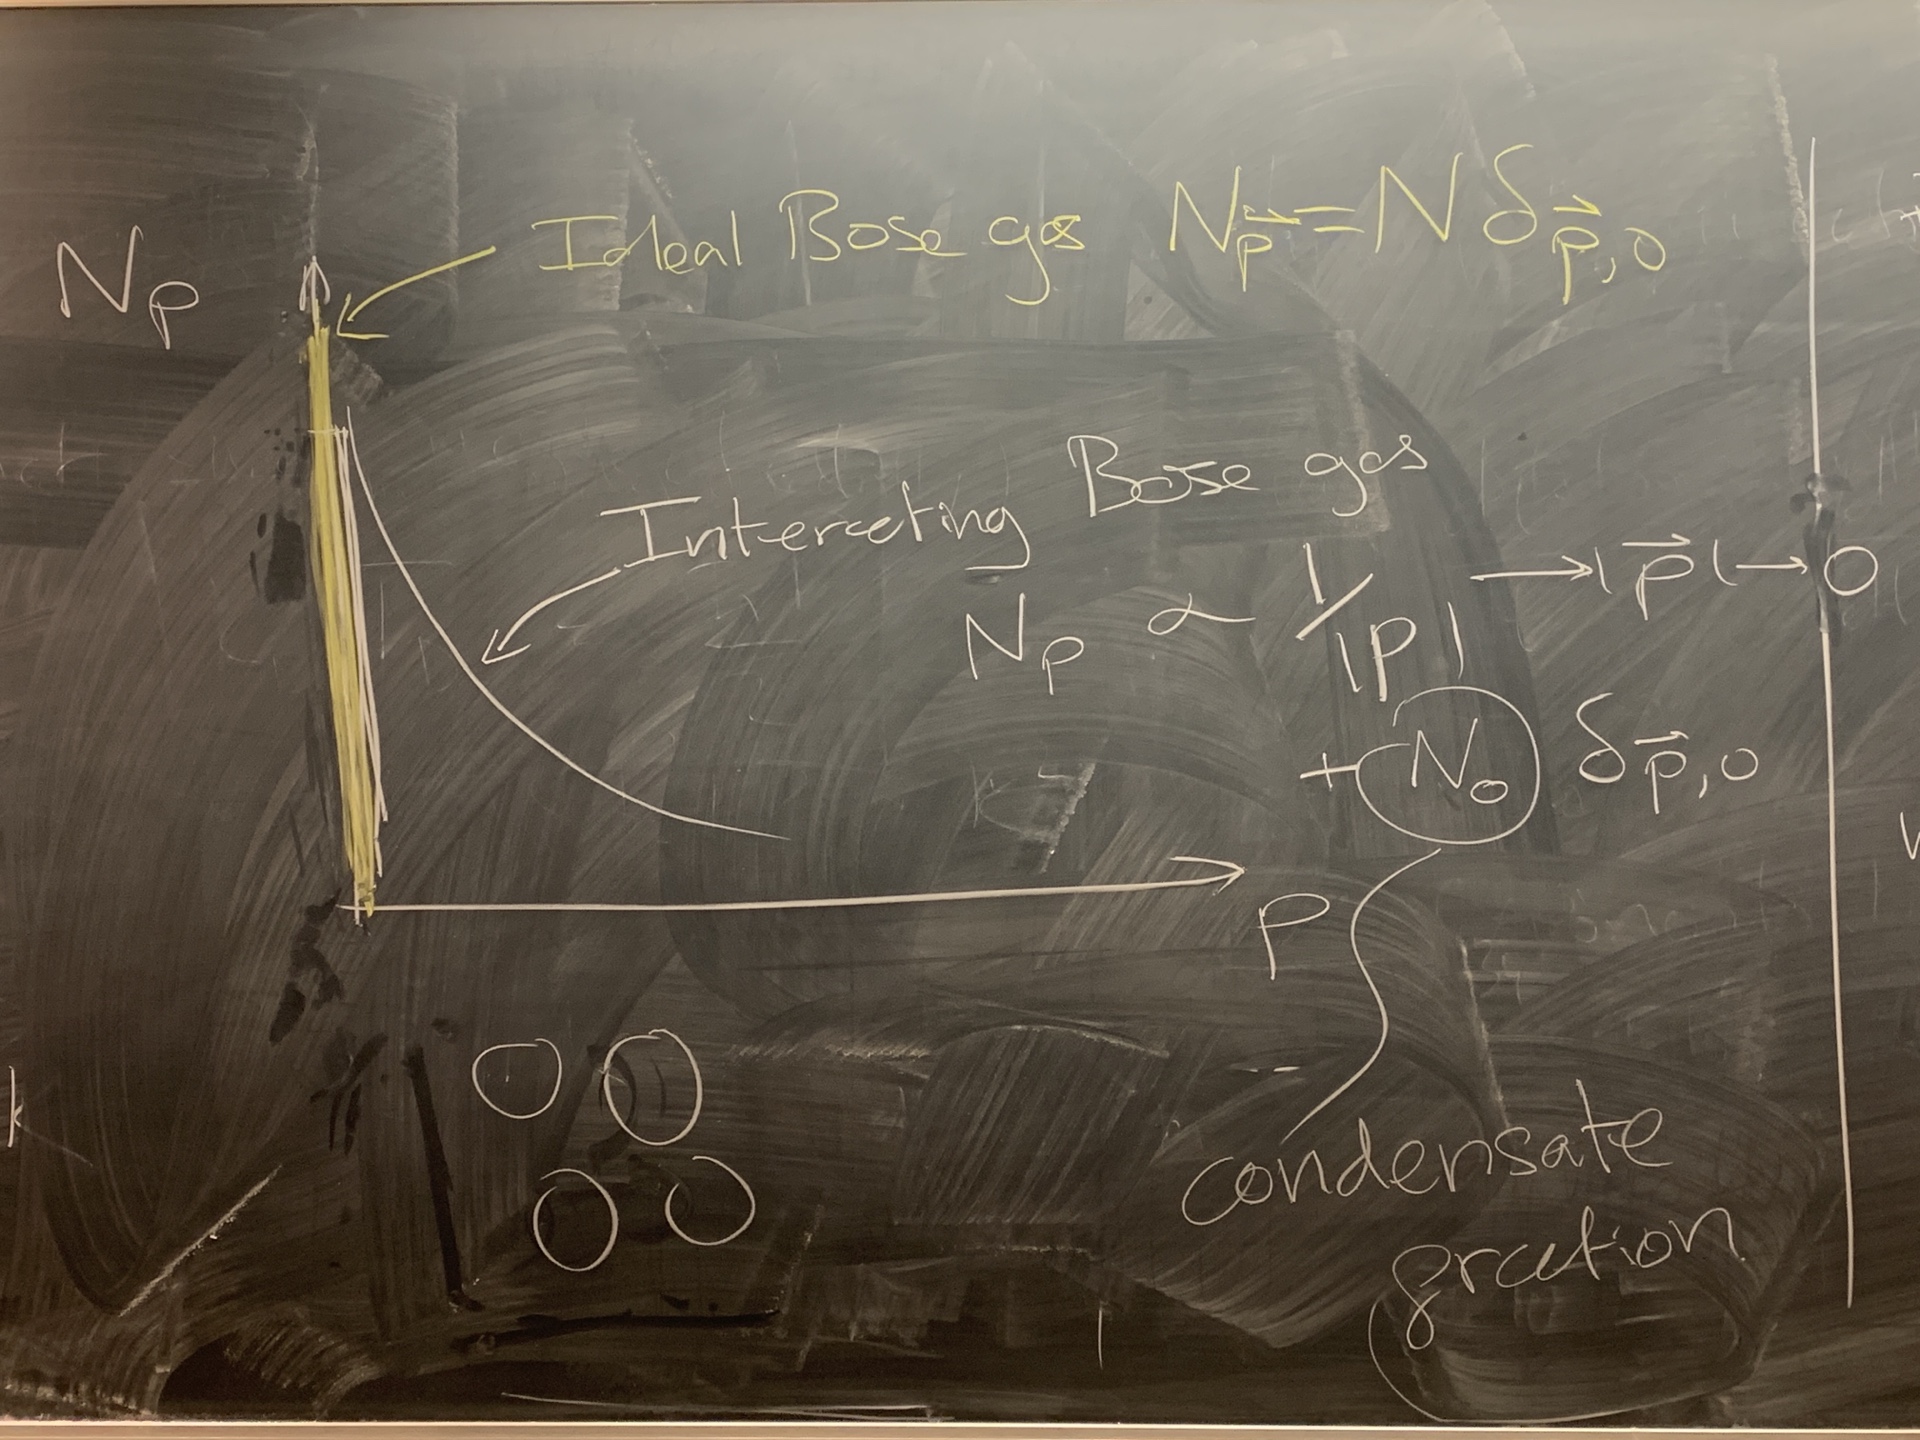 Ideal Bose gas N_{\vec{p}} = N δ_{\vec{p},0}
N_p
Interacting Bose gas
N_p ∝ 1/|p| → |\vec{p}| → 0
+ N_0 δ_{\vec{p},0}
p
condensate
fraction